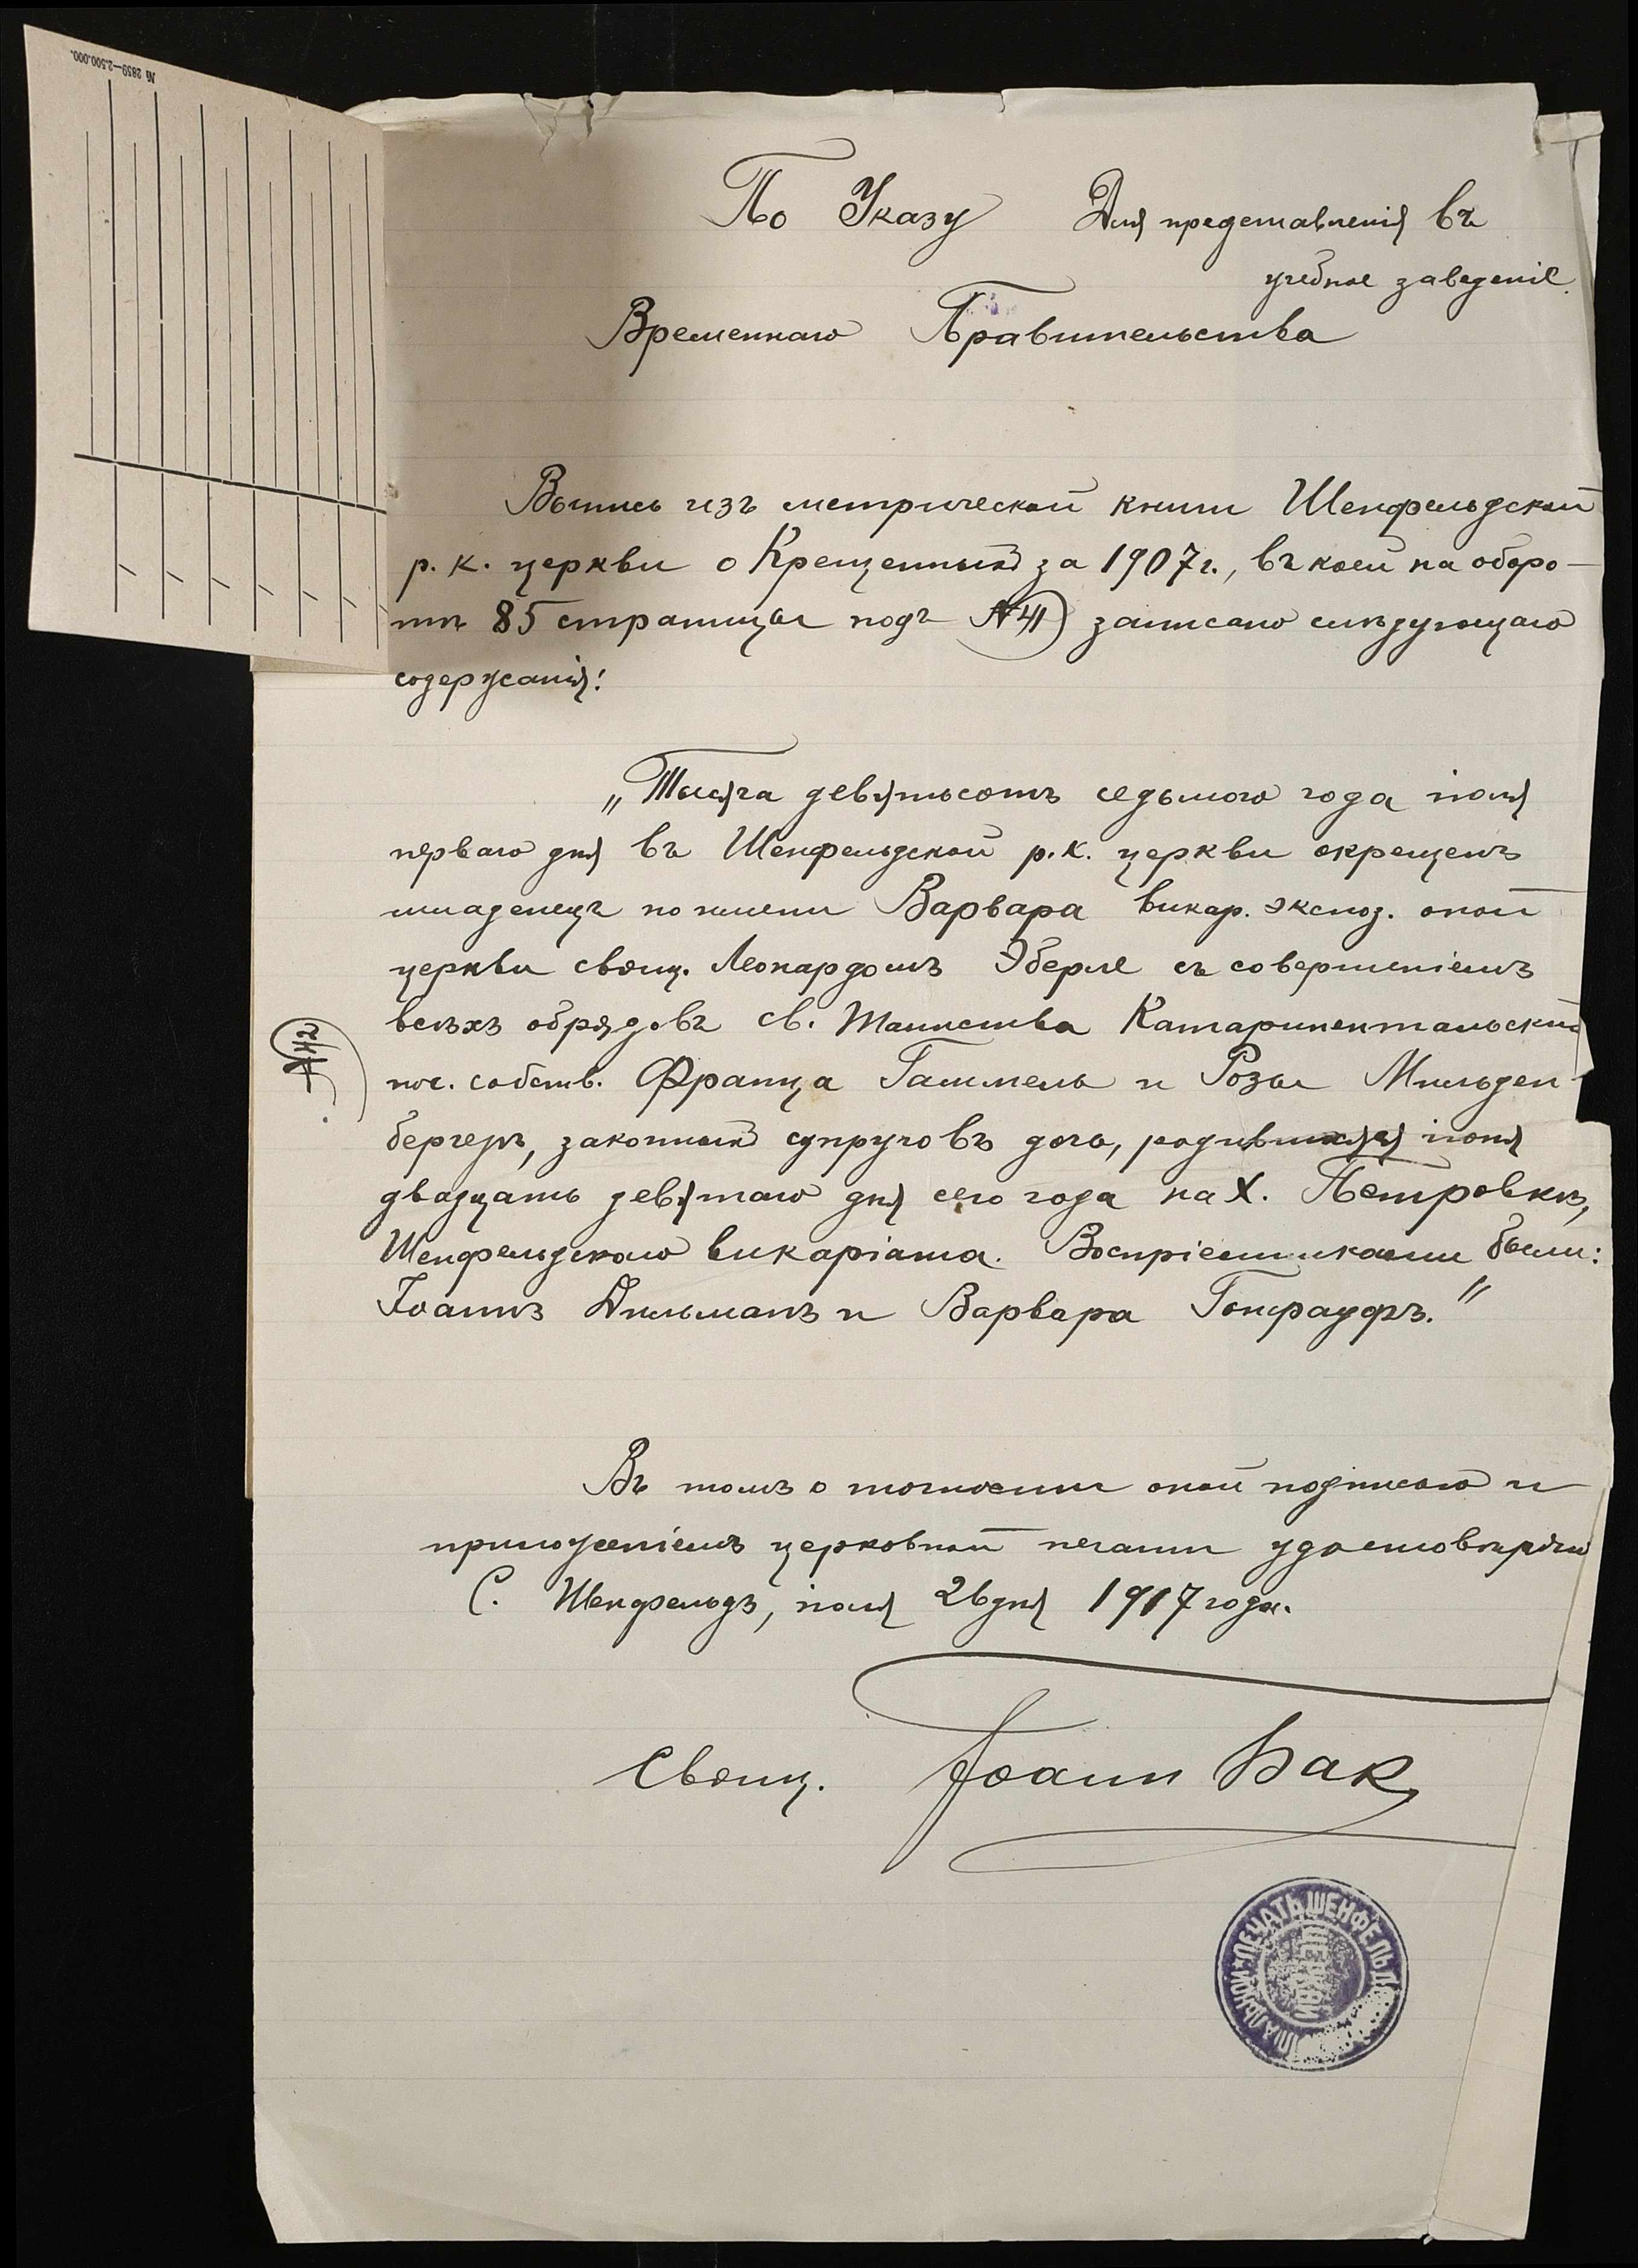 № 2859—2.500.000.
По Указу
Для представленія въ
учебное заведеніе.
Временнаго Правительства
Выпись изъ метрической книги Шенфельдской
р. к. церкви о Крещенныхъ за 1907 г., въ коей на оборо-
тѣ 85 страницы подъ №41 записано слѣдующаго
содержанія:
„Тысяча девятьсотъ седьмого года іюля
перваго дня въ Шенфельдской р. к. церкви окрещенъ
младенецъ по имени Варвара викар. экспоз. оной
церкви свящ. Леонардомъ Эберле съ совершеніемъ
всѣхъ обрядовъ св. Таинства Катариентальскій
пос. собств. Франца Гаммель и Розы Мильден-
бергеръ, законныхъ супруговъ дочь, родившаяся іюня
двадцать девятаго дня сего года на х. Петровкѣ,
Шенфельдскаго викаріата. Воспріемниками были:
Іоаннъ Дильманъ и Варвара Гонрауфъ."
Въ томъ о точности оной подписью и
приложеніемъ церковной печати удостовѣряю
С. Шенфельдъ, іюля 26 дня 1917 года.
Свящ. Іоанн Бак
ПЕЧАТЬ ШЕНФЕЛЬД
ЦЕРКВИ